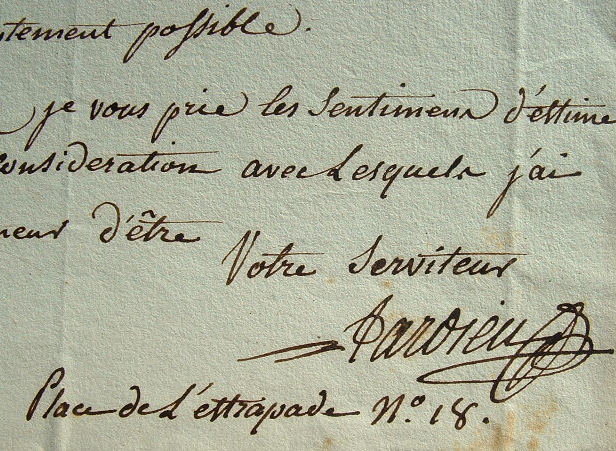 tement possible.
je vous prie les Sentimens d'estime
Consideration avec Lesquels j'ai
neur d'être
Votre Serviteur
Place de L'estrapade N.° 18.